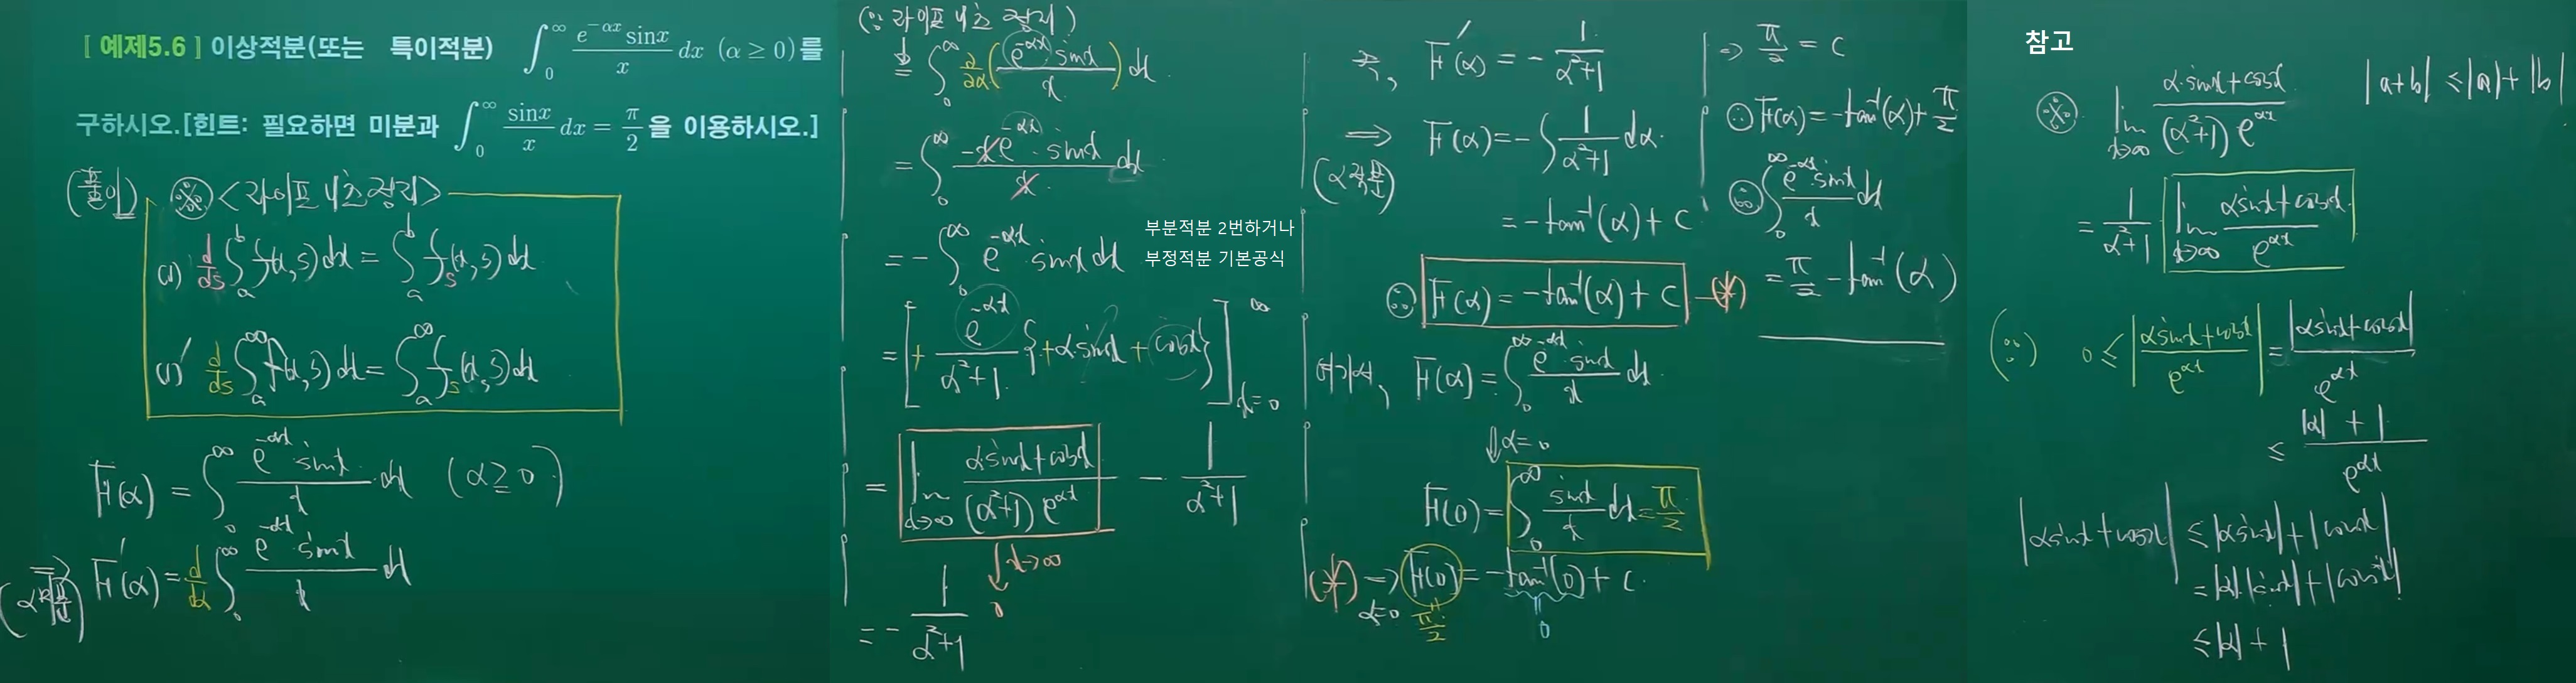 [ 예제5.6 ] 이상적분(또는 특이적분) ∫₀^∞ (e^(-αx) sinx)/x dx (α ≥ 0)를
구하시오.[힌트: 필요하면 미분과 ∫₀^∞ sinx/x dx = π/2 을 이용하시오.]
(풀이) ※ <라이프니츠 정리>
(1) d/ds ∫ₐ^b f(x,s)dx = ∫ₐ^b fₛ(x,s)dx
(1)′ d/ds ∫ₐ^∞ f(x,s)dx = ∫ₐ^∞ fₛ(x,s)dx
F(α) = ∫₀^∞ (e^(-αx)·sinx)/x dx (α ≥ 0)
⇒ (α로 미분) F′(α) = d/dα ∫₀^∞ (e^(-αx)·sinx)/x dx
(∵ 라이프니츠 정리)
= ∫₀^∞ ∂/∂α ((e^(-αx)·sinx)/x) dx
= ∫₀^∞ (-x e^(-αx)·sinx)/x dx
= - ∫₀^∞ e^(-αx)·sinx dx
부분적분 2번하거나
부정적분 기본공식
= [+ e^(-αx)/(α²+1) {+α·sinx + cosx}]_(x=0)^∞
= lim_(x→∞) (α·sinx+cosx)/((α²+1)e^(αx)) - 1/(α²+1)
↓ x→∞
0
= - 1/(α²+1)
즉, F′(α) = - 1/(α²+1)
⇒ (α적분) F(α) = - ∫ 1/(α²+1) dα
= -tan⁻¹(α) + C
∴ F(α) = -tan⁻¹(α) + C —(*)
여기서, F(α) = ∫₀^∞ (e^(-αx)·sinx)/x dx
⇓ α=0
F(0) = ∫₀^∞ sinx/x dx = π/2
(*) → α=0 F(0) = -tan⁻¹(0) + C
π/2
0
⇒ π/2 = C
∴ F(α) = -tan⁻¹(α) + π/2
∴ ∫₀^∞ (e^(-αx)·sinx)/x dx
= π/2 - tan⁻¹(α)
참고
※ lim_(x→∞) (α·sinx+cosx)/((α²+1)e^(αx))
|a+b| ≤ |a|+|b|
= 1/(α²+1) lim_(x→∞) (αsinx+cosx)/e^(αx)
(∵) 0 ≤ |(αsinx+cosx)/e^(αx)| = |αsinx+cosx|/e^(αx)
≤ (|α|+1)/e^(αx)
|αsinx+cosx| ≤ |αsinx|+|cosx|
= |α||sinx|+|cosx|
≤ |α|+1